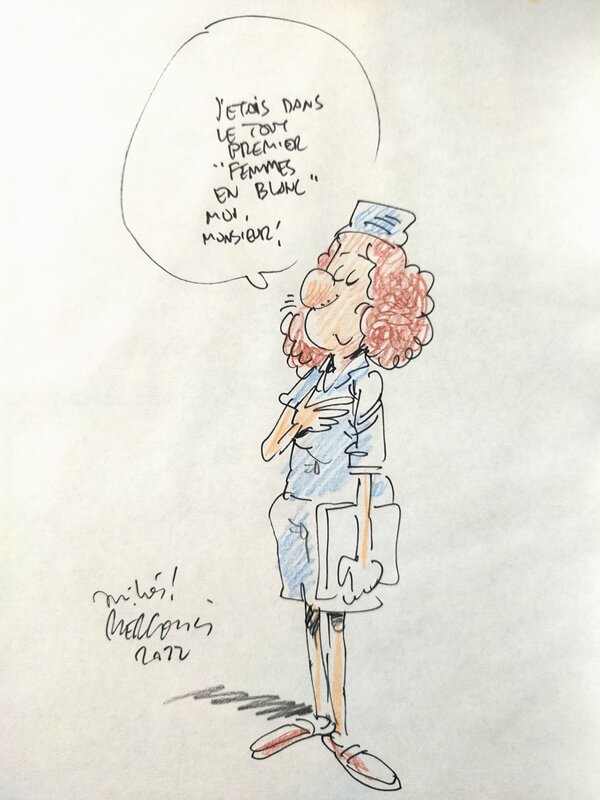 J'ETAIS DANS
LE TOUT
PREMIER
"FEMMES
EN BLANC"
MOI,
MONSIEUR!
BERCOVICI
2022